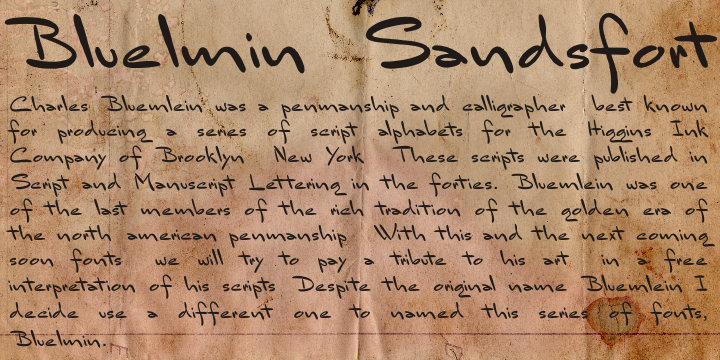 Bluelmin Sandsfort
Charles Bluemlein was a penmanship and calligrapher best known
for producing a series of script alphabets for the Higgins Ink
Company of Brooklyn New York These scripts were published in
Script and Manuscript Lettering in the forties. Bluemlein was one
of the last members of the rich tradition of the golden era of
the north american penmanship With this and the next coming
soon fonts we will try to pay a tribute to his art in a free
interpretation of his scripts Despite the original name Bluemlein I
decide use a different one to named this series of fonts,
Bluelmin.